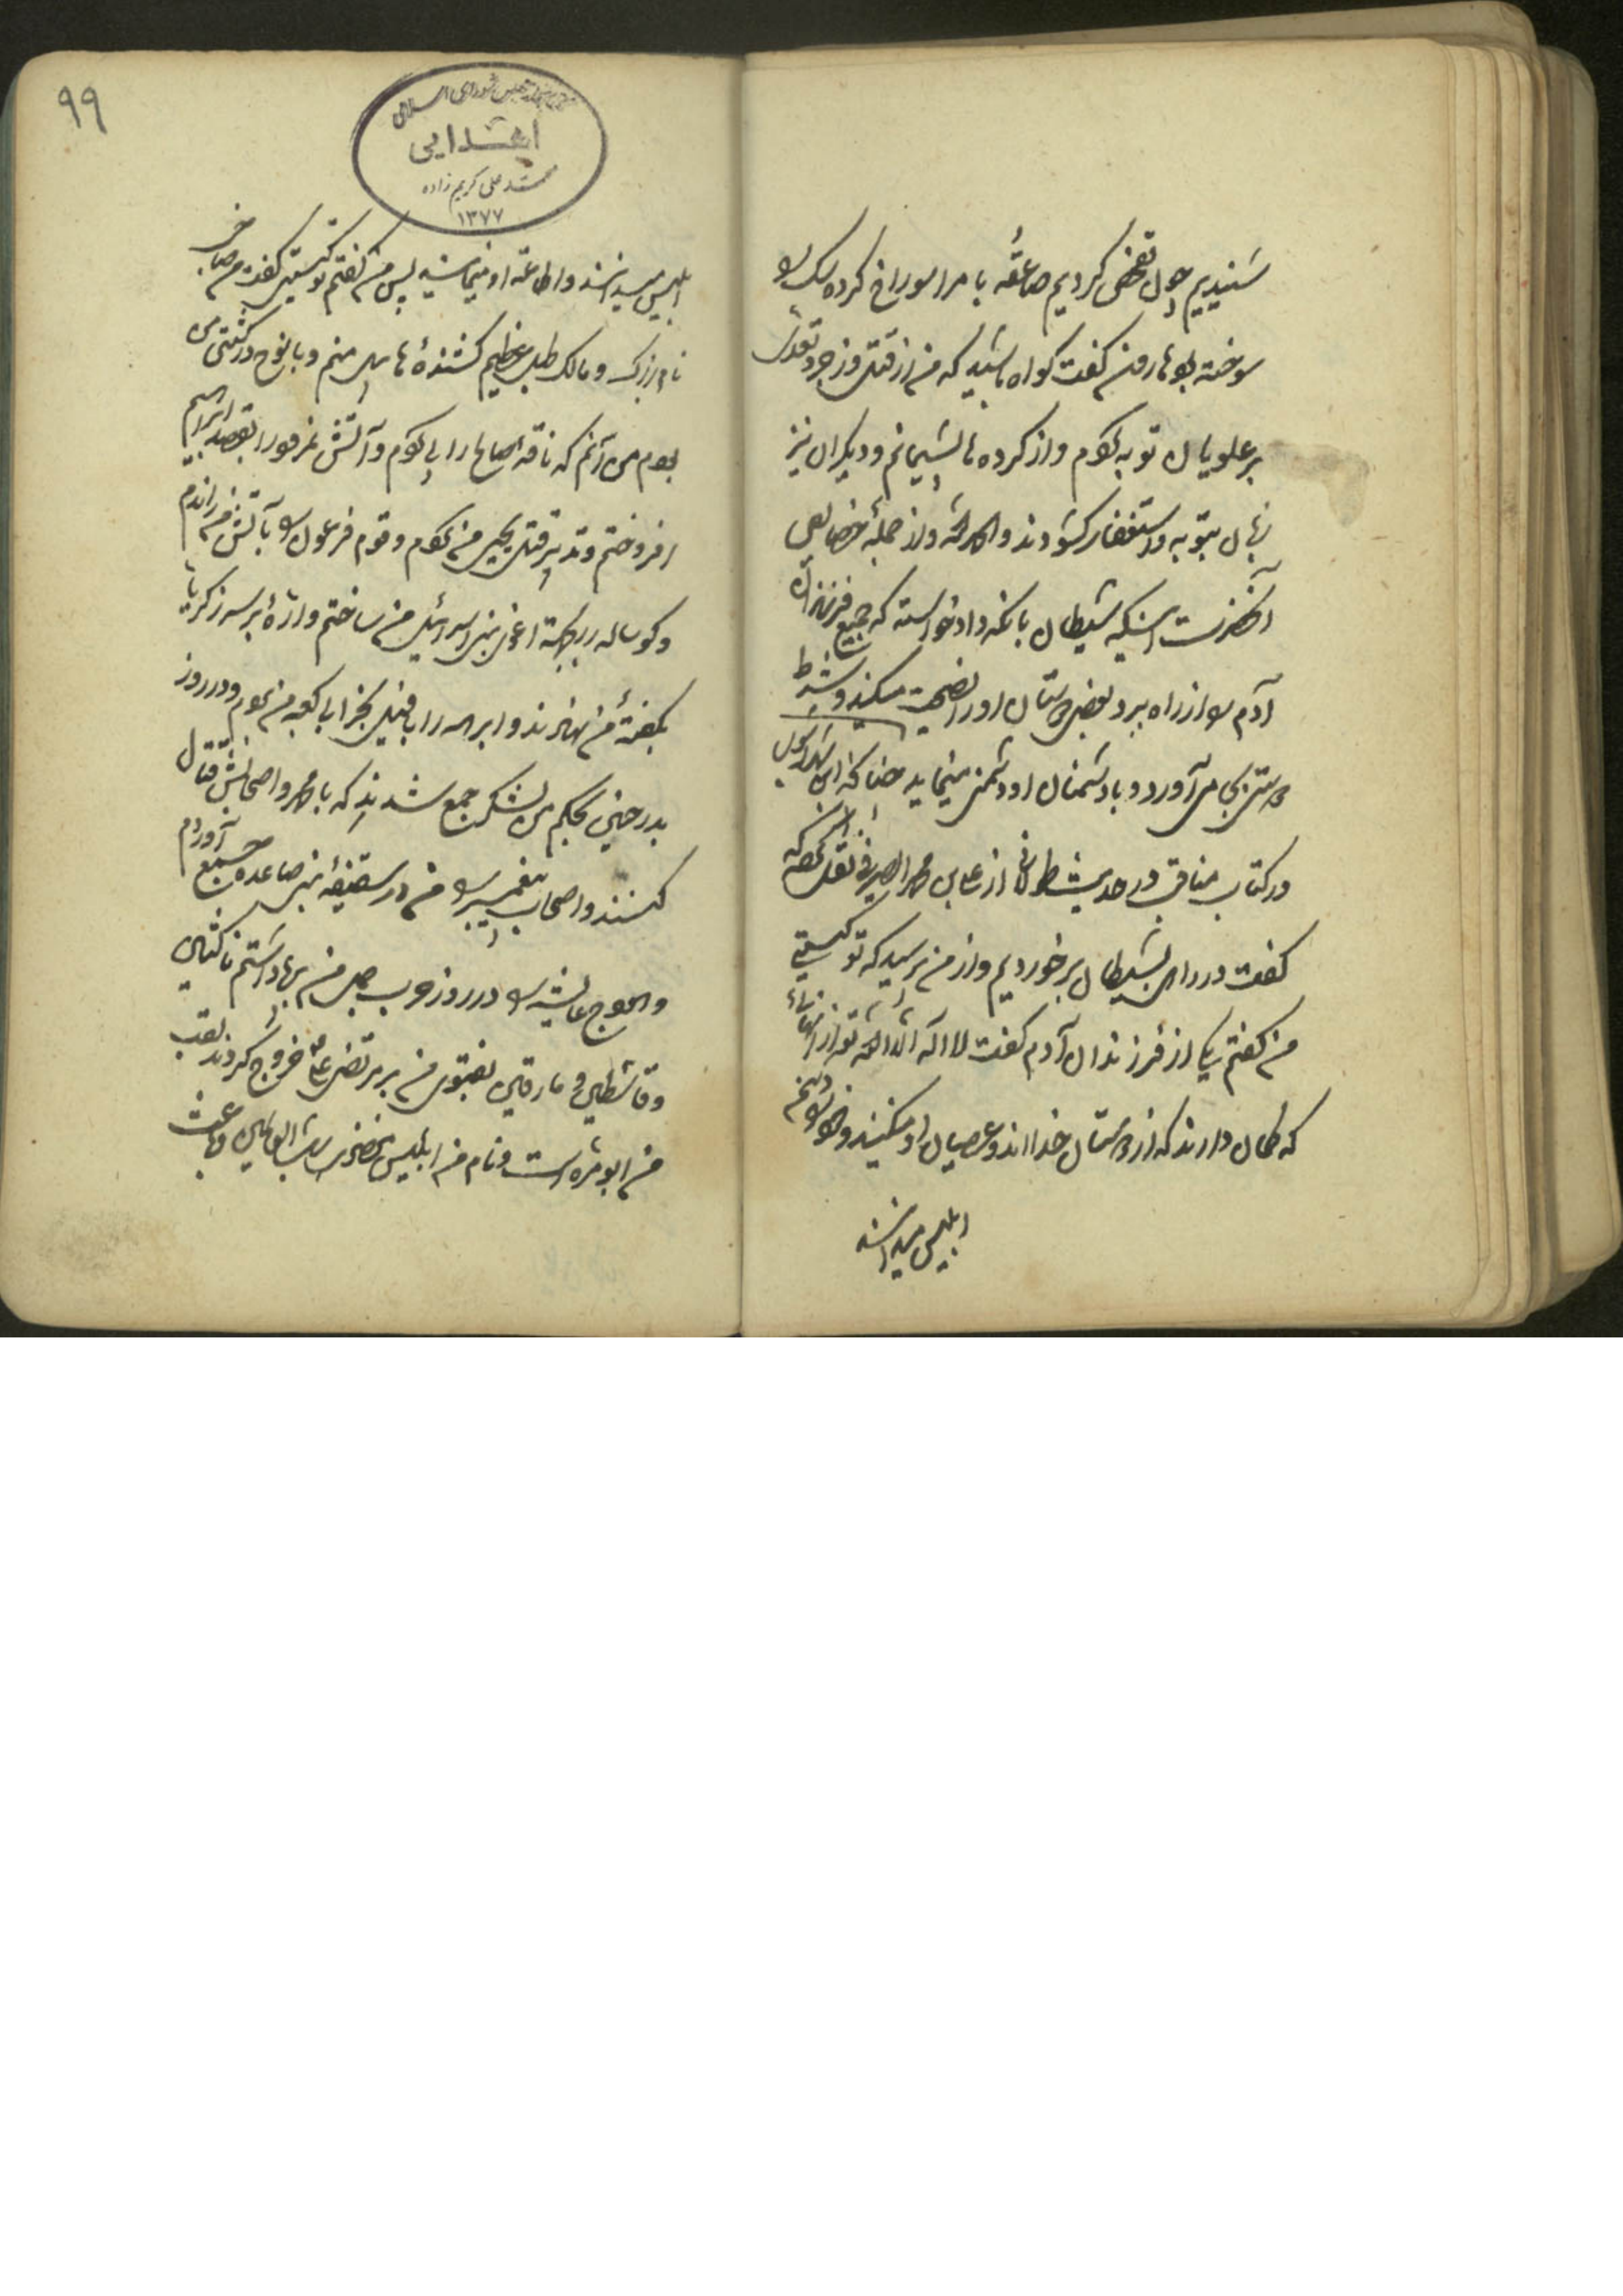 شنیدیم چون تفحص کردیم صاعقه بام را سوراخ کرده
سوخته بود هارون گفت گواه باشید که من از قتل و زجر و تعدی
بر علویان توبه کردم و از کرده‌ها پشیمانم و دیگران نیز
زبان بتوبه و استغفار گشودند والحمدلله و از جمله خصایص
آنحضرت اینکه شیطان با آنکه داد خواسته که جمیع فرزندان
آدم را از راه ببرد بعضی دوستان او را نصیحت میکند و شرط
دوستی بجا می‌آورد و با دشمنان او دشمنی مینماید چنانکه ابن شهرآشوب
در کتاب مناقب در حدیث از علی بن محمد الصیرفی نقل نموده که
گفت در راهی بشیطان برخوردیم و از من پرسید که تو کیستی
من گفتم یکی از فرزندان آدم گفت لا اله الا الله تو از آنهائی
که گمان دارند که از دوستان خدااند و عصیان او میکنند و خود را دشمن
ابلیس میدانند
۹۹
کتابخانه مجلس شورای اسلامی
اهدایی
محمد علی کریم زاده
۱۳۷۷
ابلیس میدانند و اطاعت او مینمایند پس من گفتم تو کیستی گفت من صاحب
نام بزرگ و مالک طبل عظیم کشنده هابیل منم و با نوح در کشتی من
بودم من آنم که ناقه صالح را پی کردم و آتش نمرود را بقصد ابراهیم
افروختم و تدبیر قتل یحیی من کردم و قوم فرعون را بآتش من راندم
و گوساله را بجهت اغوای بنی اسرائیل من ساختم و اره بر سر زکریا
بگفته من نهادند و ابرهه را با فیل بخرابی کعبه من بردم و در روز
بدر و حنین بحکم من لشکر جمع شدند که با محمد و اصحابش قتال
کنند و اصحاب پیغمبر را من در سقیفه بنی ساعده جمع آوردم
و هودج عایشه را در روز حرب جمل من بپا داشتم ناکثین
و قاسطین و مارقین بفتوی من بر مرتضی علی خروج کردند لقب
من ابو مره است و نام من ابلیس مغضوب رب العالمین